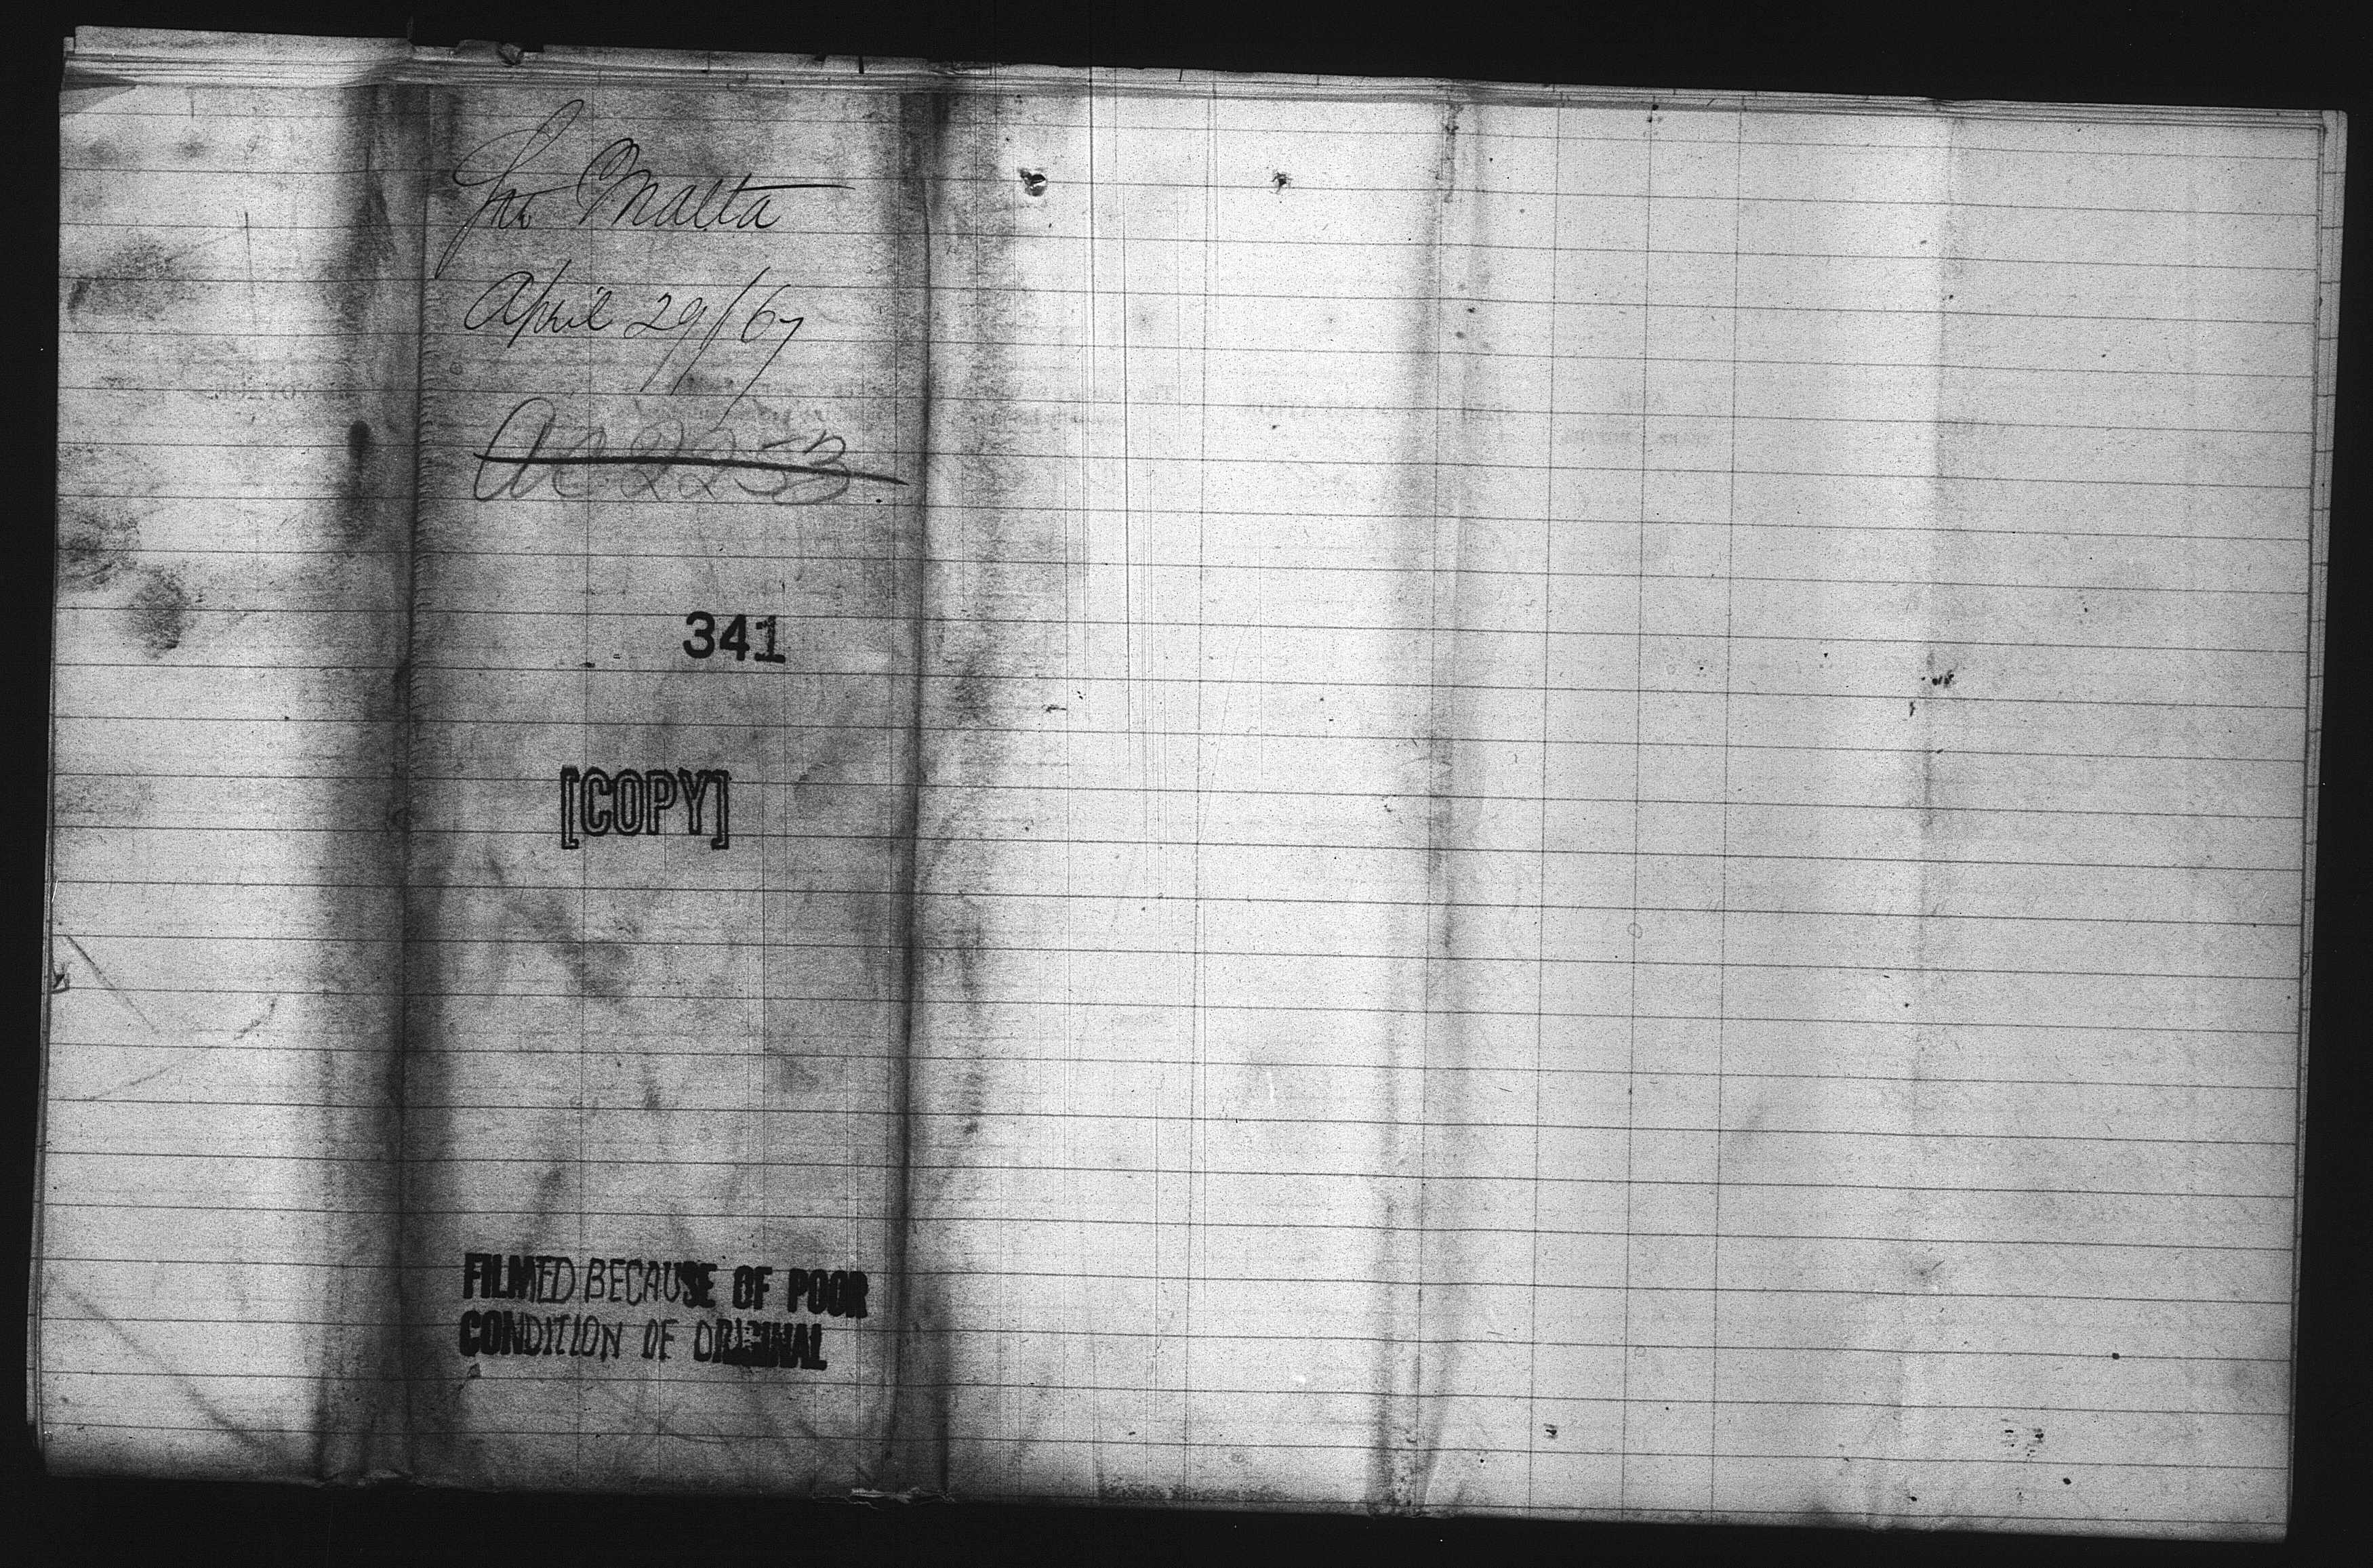 Str Malta
April 29/67
Ac 2253
341
[COPY]
FILMED BECAUSE OF POOR
CONDITION OF ORIGINAL